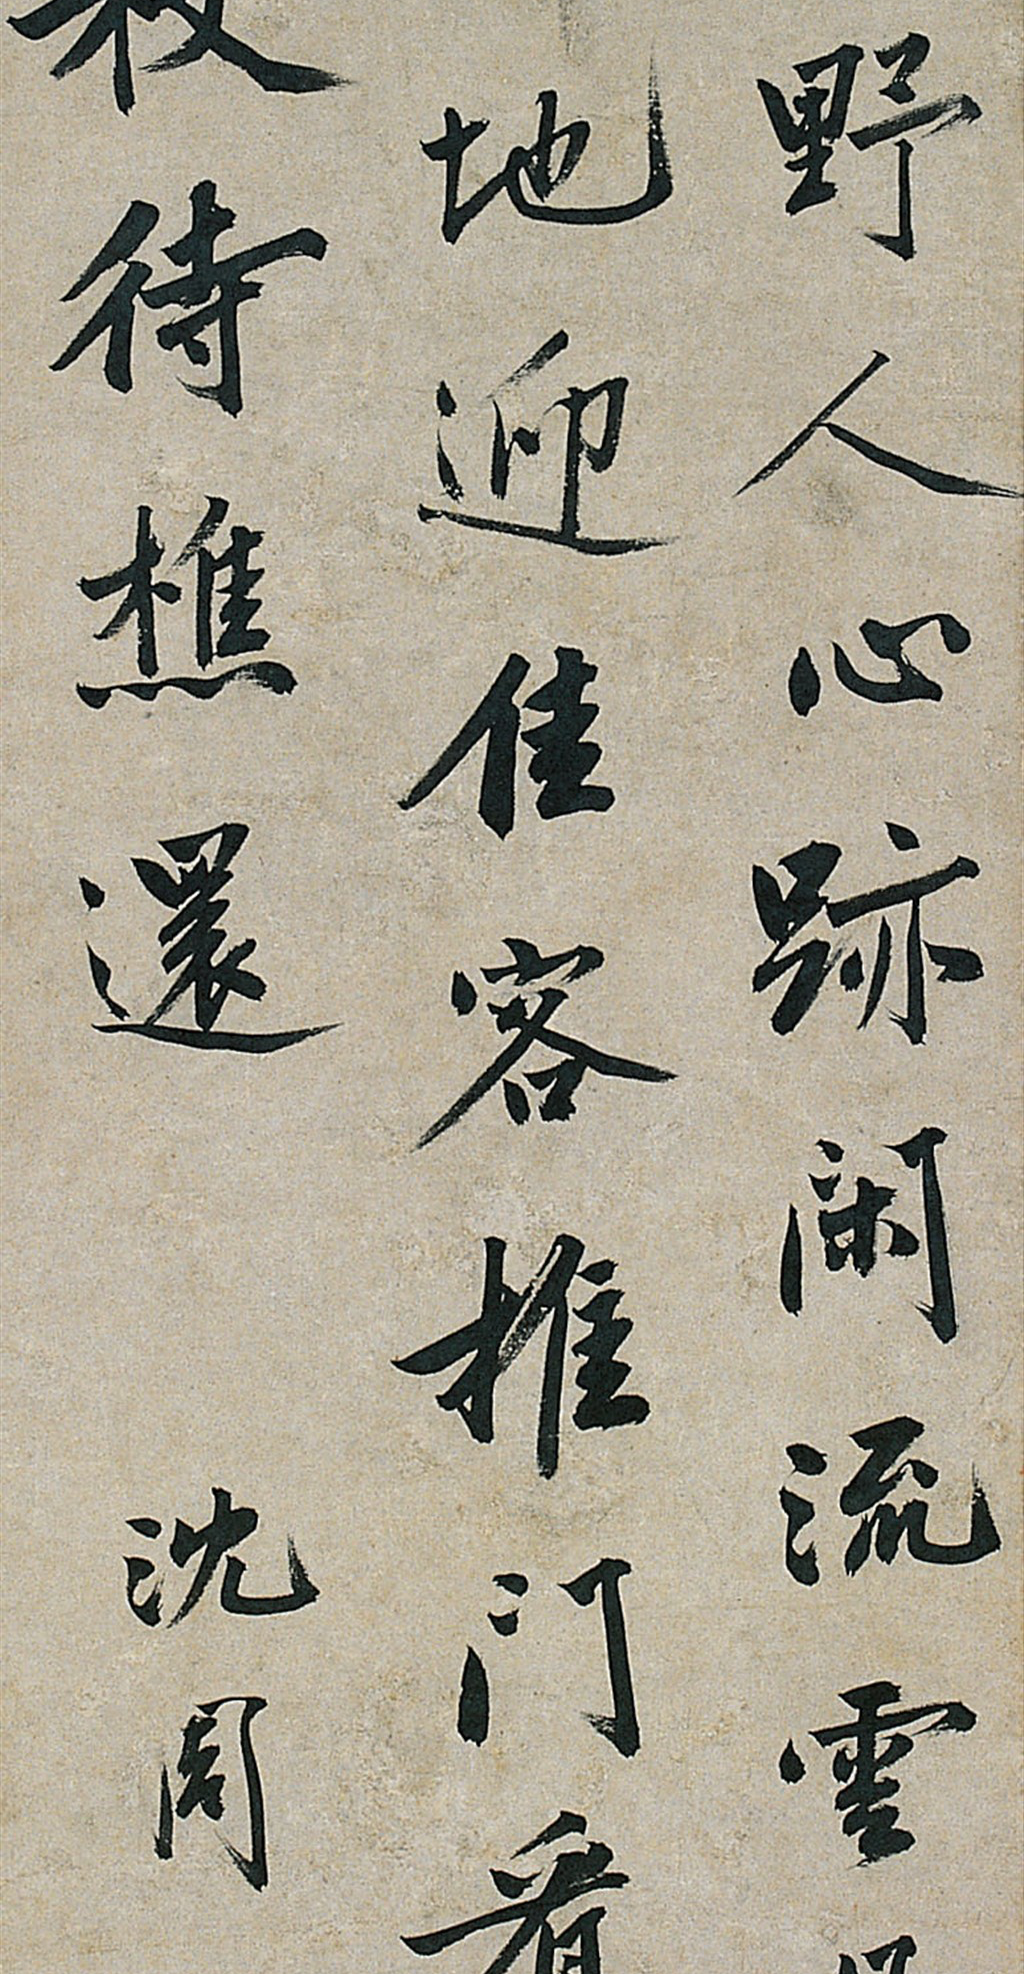 野人心跡閑流雲
地迎佳客推門看
待樵還
沈周